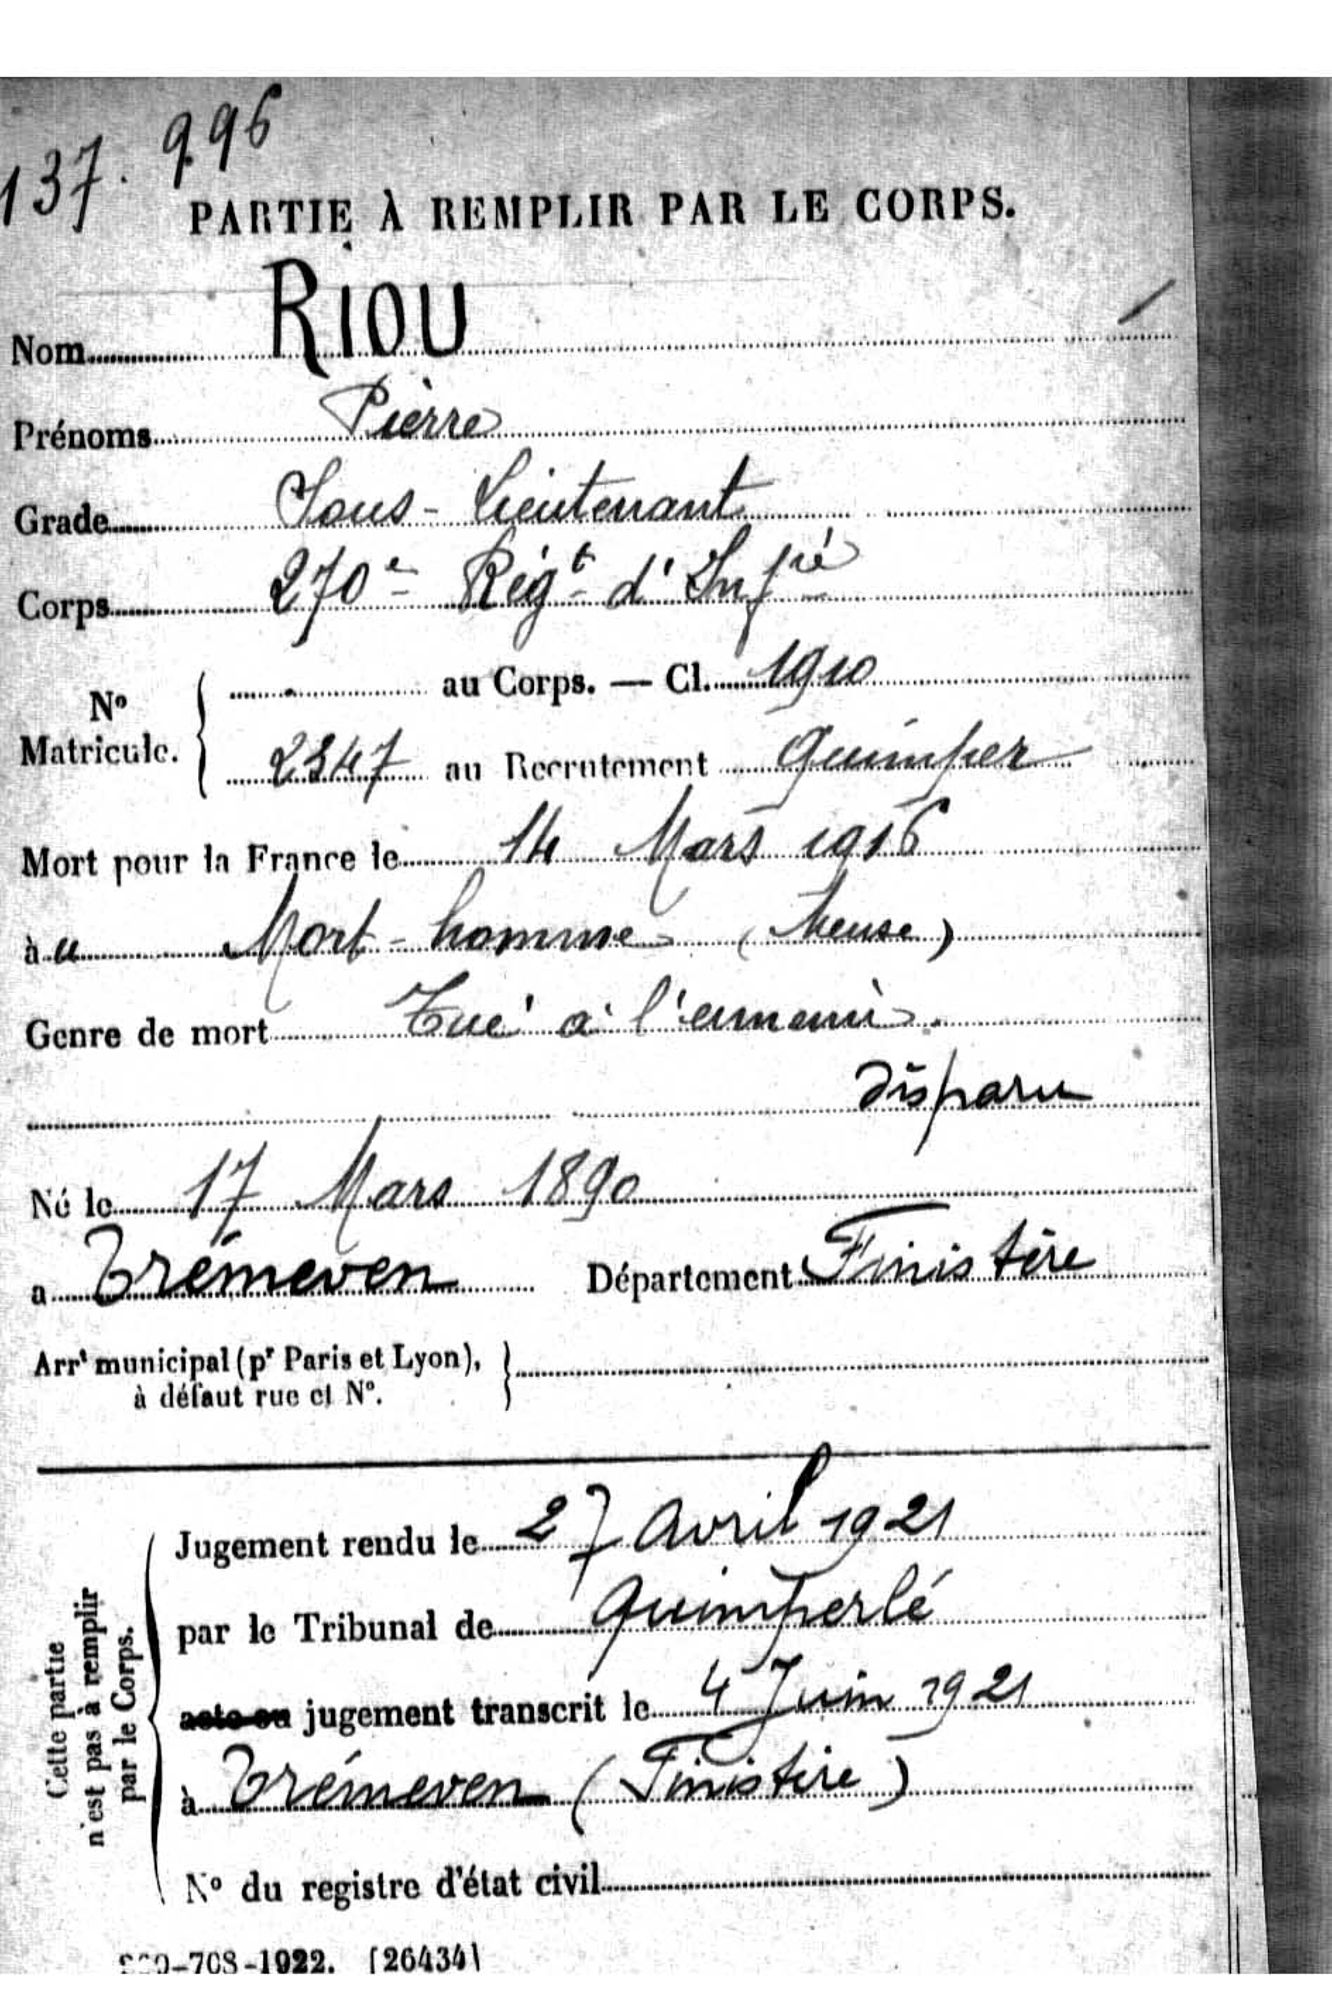 137.996
PARTIE À REMPLIR PAR LE CORPS.
Nom RIOU
Prénoms Pierre
Grade Sous-Lieutenant
Corps 270e Régt d'Infie
No Matricule. { au Corps. — Cl. 1910
2347 au Recrutement Quimper
Mort pour la France le 14 Mars 1916
à u Mort-homme (Meuse)
Genre de mort Tué à l'ennemi.
Disparu
Né le 17 Mars 1890
a Trémeven Département Finistère
Arrt municipal (pr Paris et Lyon), }
à défaut rue et No.
Cette partie
n'est pas à remplir
par le Corps.
Jugement rendu le 27 Avril 1921
par le Tribunal de Quimperlé
acte ou jugement transcrit le 4 Juin 1921
à Trémeven (Finistère)
No du registre d'état civil
-708-1922. [26434]